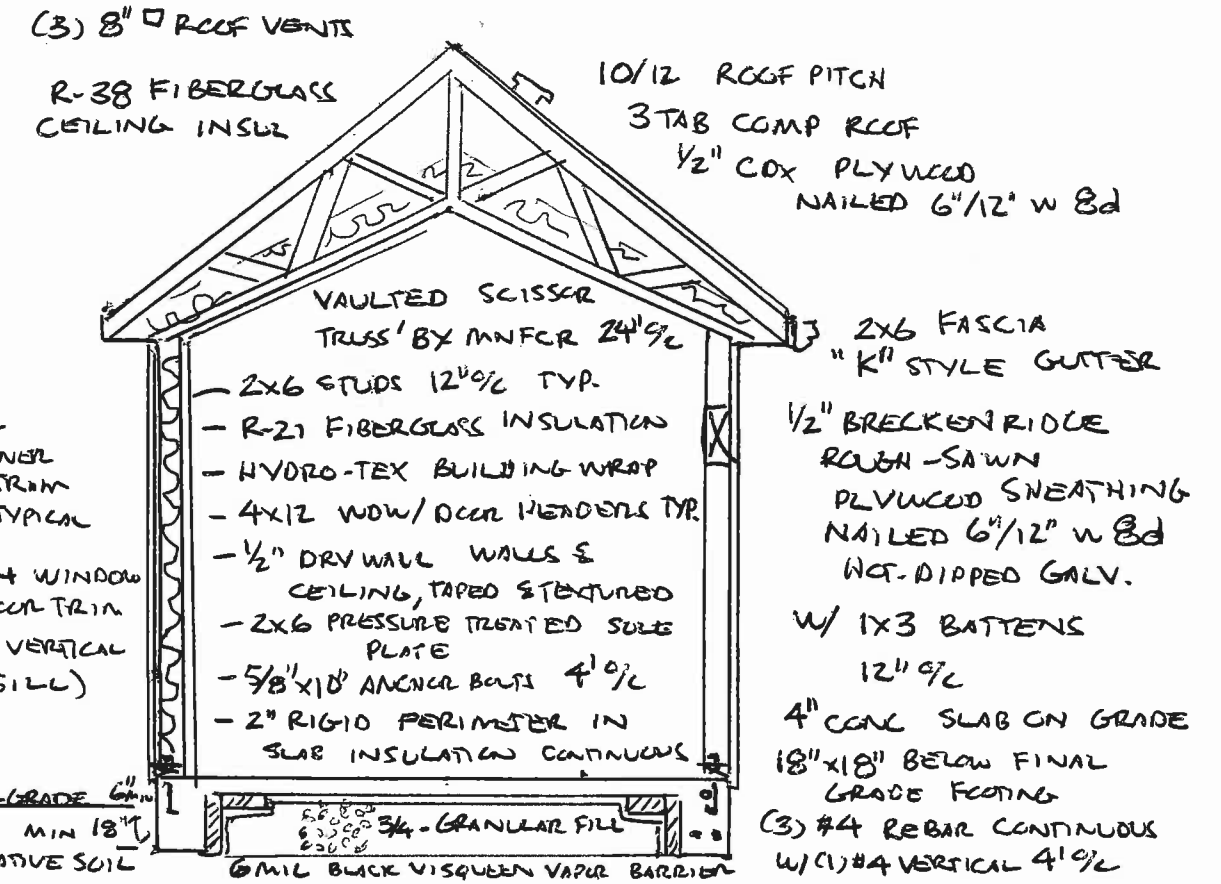 (3) 8" □ ROOF VENTS
R-38 FIBERGLASS
CEILING INSUL
10/12 ROOF PITCH
3 TAB COMP ROOF
1/2" CDX PLYWOOD
NAILED 6"/12" W 8d
VAULTED SCISSOR
TRUSS' BY MNFCR 24" O/C
2X6 FASCIA
"K" STYLE GUTTER
- 2X6 STUDS 12" O/C TYP.
- R-21 FIBERGLASS INSULATION
- HYDRO-TEX BUILDING WRAP
- 4X12 WDW/DOOR HEADERS TYP.
- 1/2" DRYWALL WALLS &
CEILING, TAPED & TEXTURED
- 2X6 PRESSURE TREATED SOLE
PLATE
- 5/8"X10" ANCHOR BOLTS 4' O/C
- 2" RIGID PERIMETER IN
SLAB INSULATION CONTINUOUS
1/2" BRECKENRIDGE
ROUGH-SAWN
PLYWOOD SHEATHING
NAILED 6"/12" W 8d
HOT-DIPPED GALV.
W/ 1X3 BATTENS
12" O/C
4" CONC SLAB ON GRADE
18"X18" BELOW FINAL
GRADE FOOTING
(3) #4 REBAR CONTINUOUS
W/(1)#4 VERTICAL 4' O/C
NER
TRIM
TYPICAL
4 WINDOW
OOR TRIM
VERTICAL
SILL)
GRADE 6" MIN
MIN 18"
ATIVE SOIL
3/4- GRANULAR FILL
6 MIL BLACK VISQUEEN VAPOR BARRIER